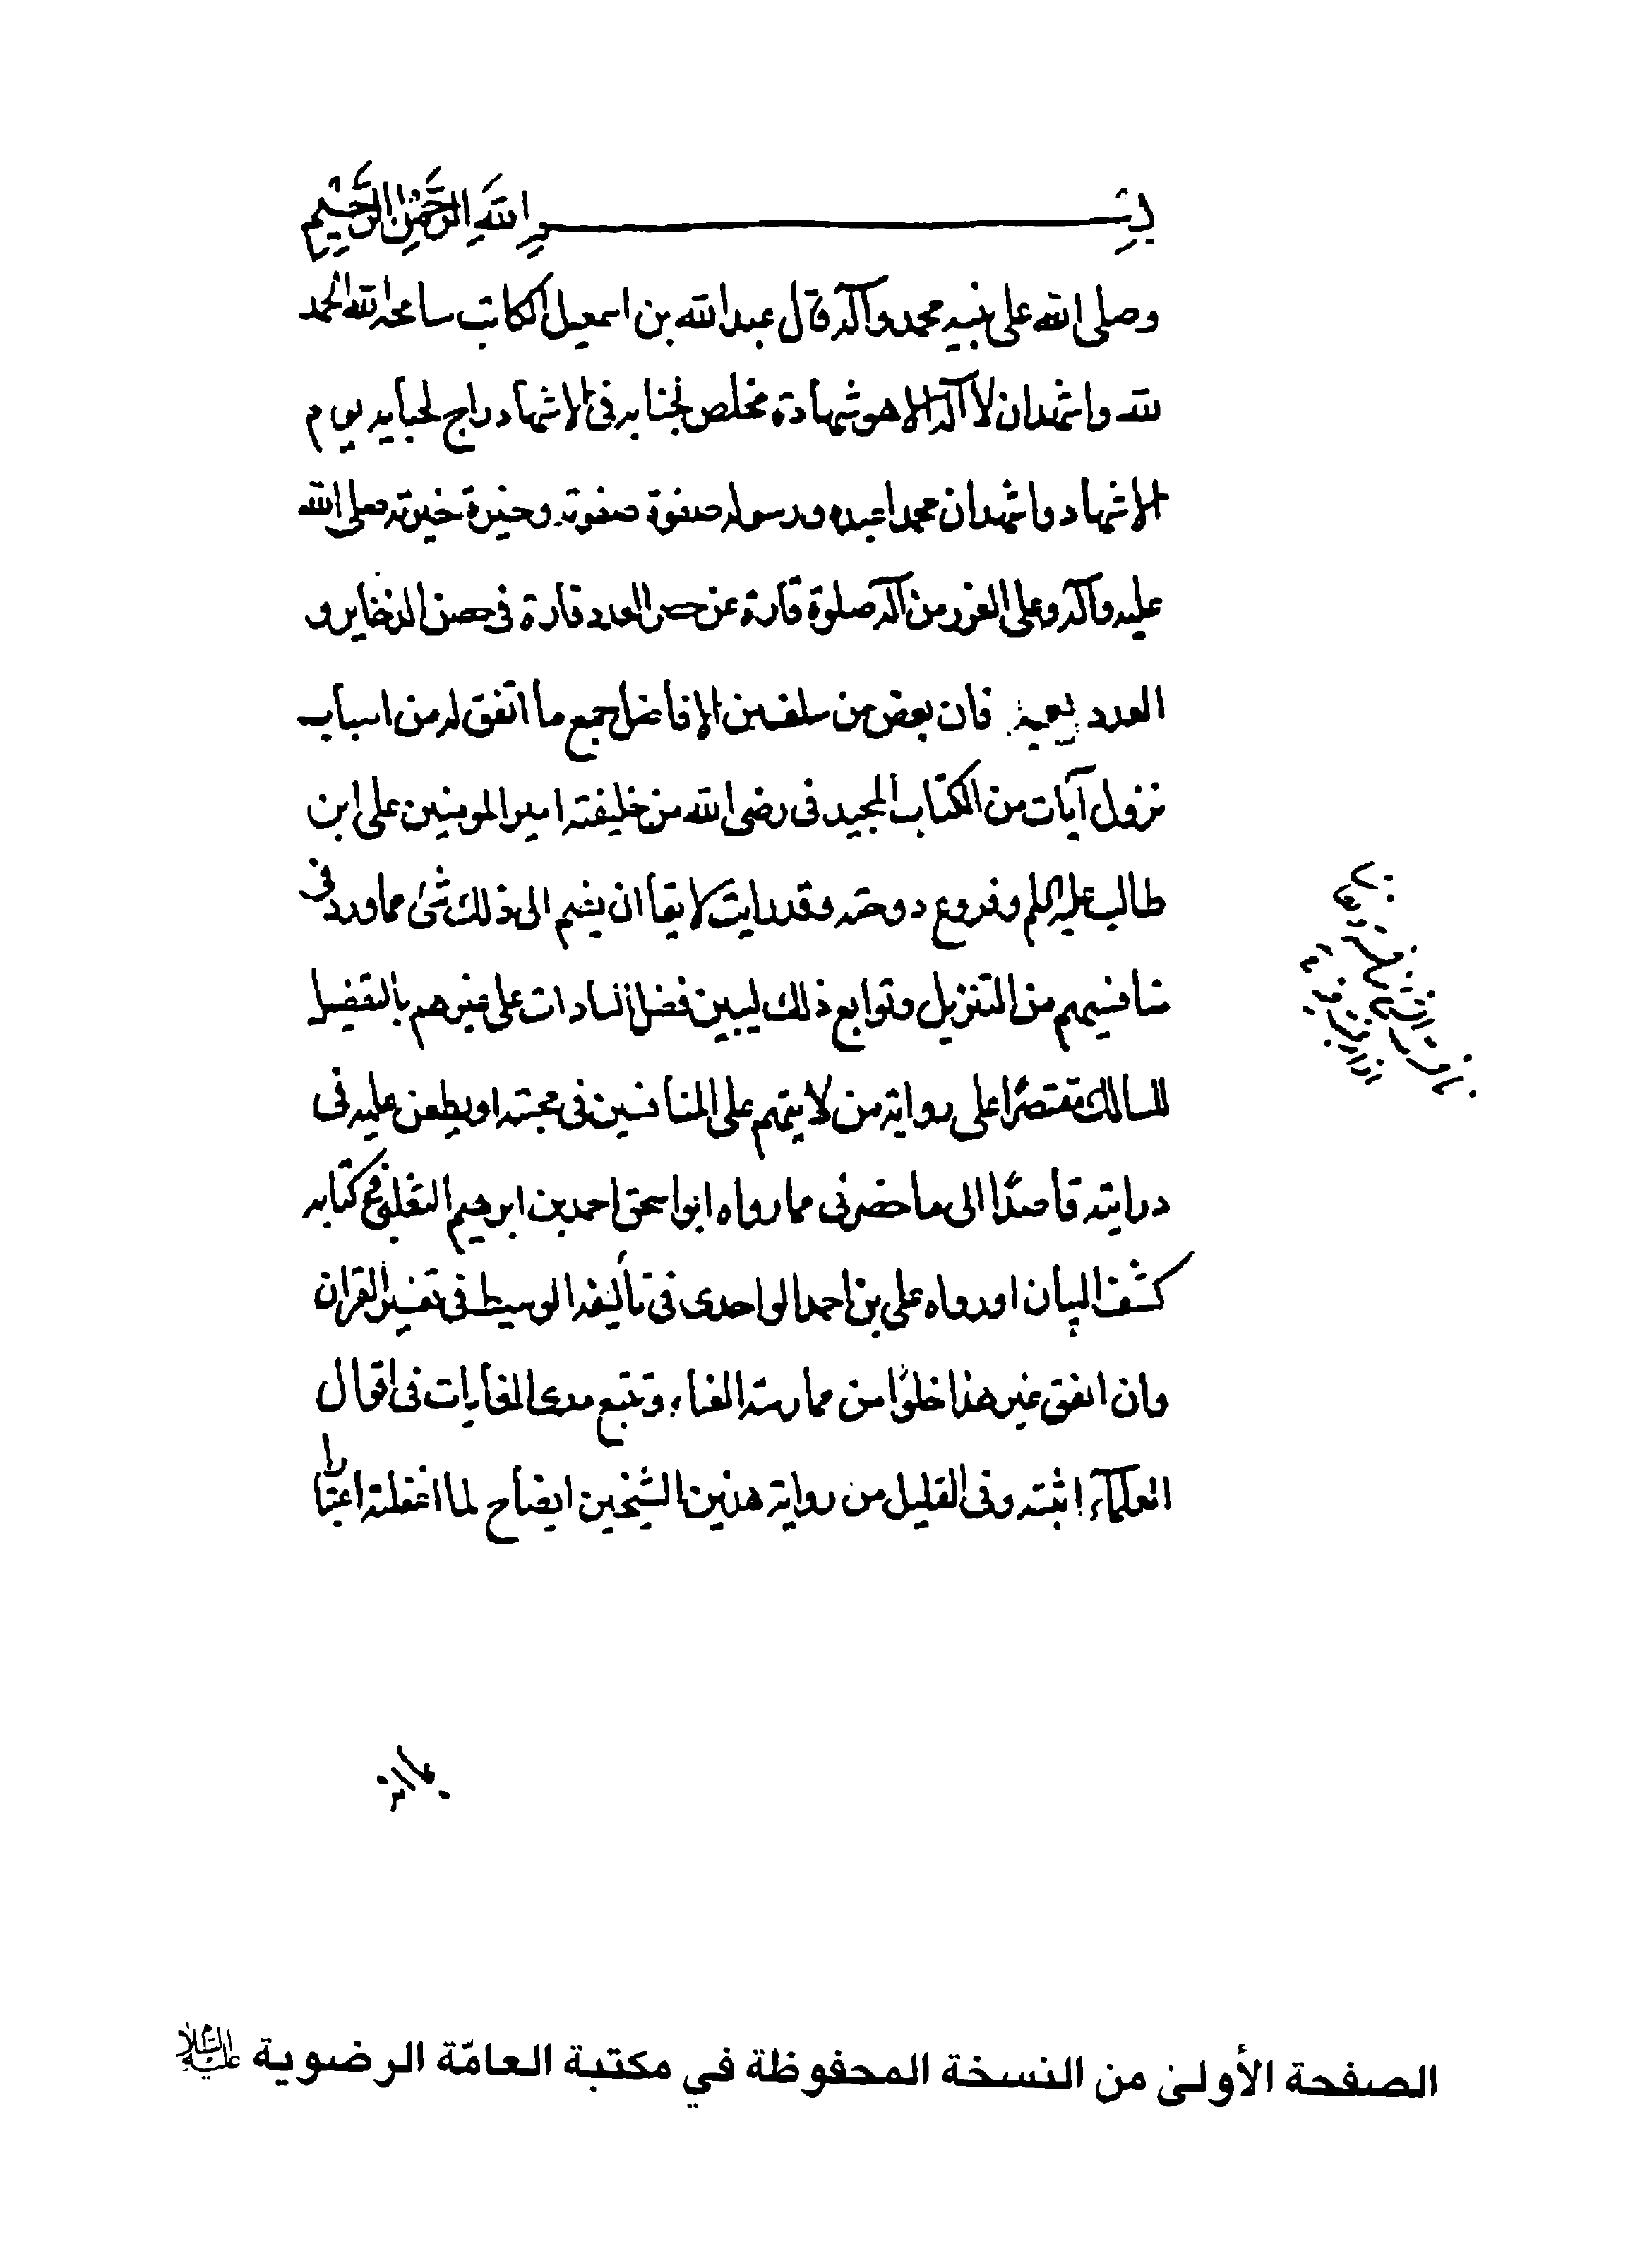 بسم الله الرحمن الرحيم
وصلى الله على نبيه محمد وآله قال عبد الله بن اسمعيل الكاتب سامحه الله الحمد
لله واشهد ان لا آله الا هو شهادة مخلص لجنابه فى الاشهاد راج لحبايه يوم
الاشهاد واشهد ان محمدا عبده ورسوله صفوة صفوته وخيرة خيرته صلى الله
عليه وآله وعلى الغرر من آله صلوة قارة عن حصر العدد قارة فى حصن الذخاير و
العدد فان بعض من سلف من الافاضل جمع ما اتفق له من اسباب
نزول آيات من الكتاب المجيد فى رضى الله من خليفته امير المومنين على ابن
طالب عليه السلم وفروع دوحته وقد رايت لايقا ان يضم الى ذلك شئ مما ورد فى
منافسيهم من التنزيل وتوابع ذلك ليبين فضل السادات على غيرهم بالتفضيل
للسالك مقتصرا على رواية من لا يتهم على المنافسين فى محبته او يطعن عليه فى
درايته قاصدا الى ما حضرنى مما رواه ابو اسحق احمد بن ابرهيم الثعلبى فى كتابه
كشف البيان او رواه على بن احمد الواحدى فى تأليفه الوسيط فى تفسير القران
وان اتفق غير هذا خلوا من ممارسة العناء وتتبع مدى الغايات فى اقوال
العلمآء اثبته وفى القليل من رواية هذين الشيخين ايضاح لما اغفلته اعتبارا
الصفحة الأولىٰ من النسخة المحفوظة في مكتبة العامّة الرضوية عليه السلام